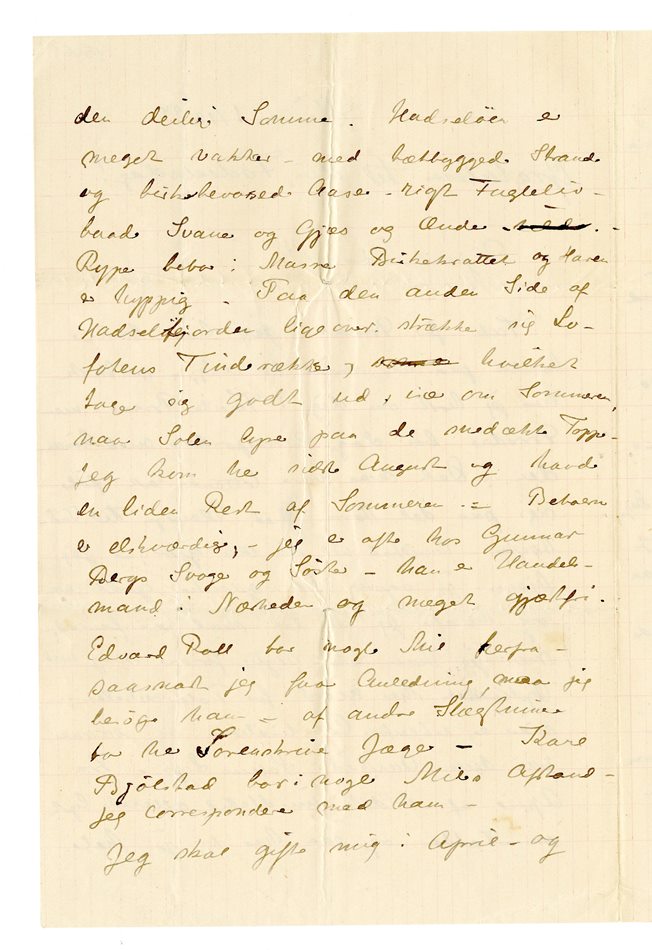 den deilig Somme. Hadseløen e
meget vakker – med tætbygged Strande
og birkebevoxed Aase – rigt Fugleliv –
baade Svane og Gjæs og Ænde –
Rype bebor i Masse Birkekrattet og Haren
e hyppig – Paa den anden Side af
Hadselfjorden ligeover strække sig Lo-
fotens Tinderække, hvilket
tage sig godt ud, især om Sommeren,
naar Solen lyse paa de snedækte Toppe –
Jeg kom he sidst August og havde
en liden Rest af Sommeren. – Beboern
e elskværdig, – jeg e ofte hos Gunnar
Bergs Svoge og Søste – han e Handels-
mand i Nærheden og meget gjæstfri.
Edvard Roll bor nogle Mil herfra –
saasnart jeg faar Anledning, maa jeg
besøge ham – af andre Slægtninge
bo he Sorenskrive Jæge – Karl
Bjølstad bor i nogle Miles Afstand –
jeg correspondere med ham –
Jeg skal gifte mig i April – og